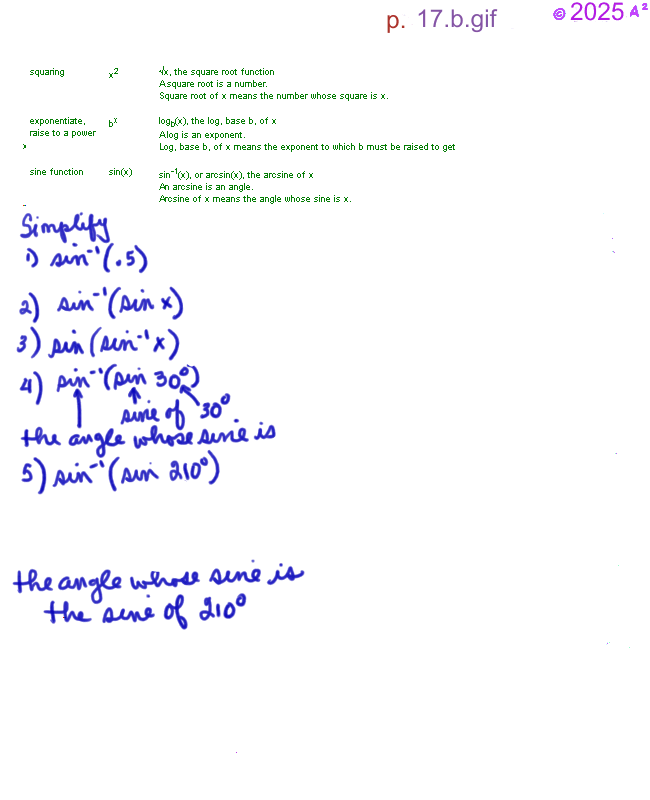 p. 17.b.gif © 2025 A²
squaring x² √x, the square root function
A square root is a number.
Square root of x means the number whose square is x.
exponentiate, bˣ log_b(x), the log, base b, of x
raise to a power A log is an exponent.
x Log, base b, of x means the exponent to which b must be raised to get
sine function sin(x) sin⁻¹(x), or arcsin(x), the arcsine of x
An arcsine is an angle.
Arcsine of x means the angle whose sine is x.
Simplify
1) sin⁻¹(.5)
2) sin⁻¹(sin x)
3) sin(sin⁻¹x)
4) sin⁻¹(sin 30°)
sine of 30°
the angle whose sine is
5) sin⁻¹(sin 210°)
the angle whose sine is
the sine of 210°